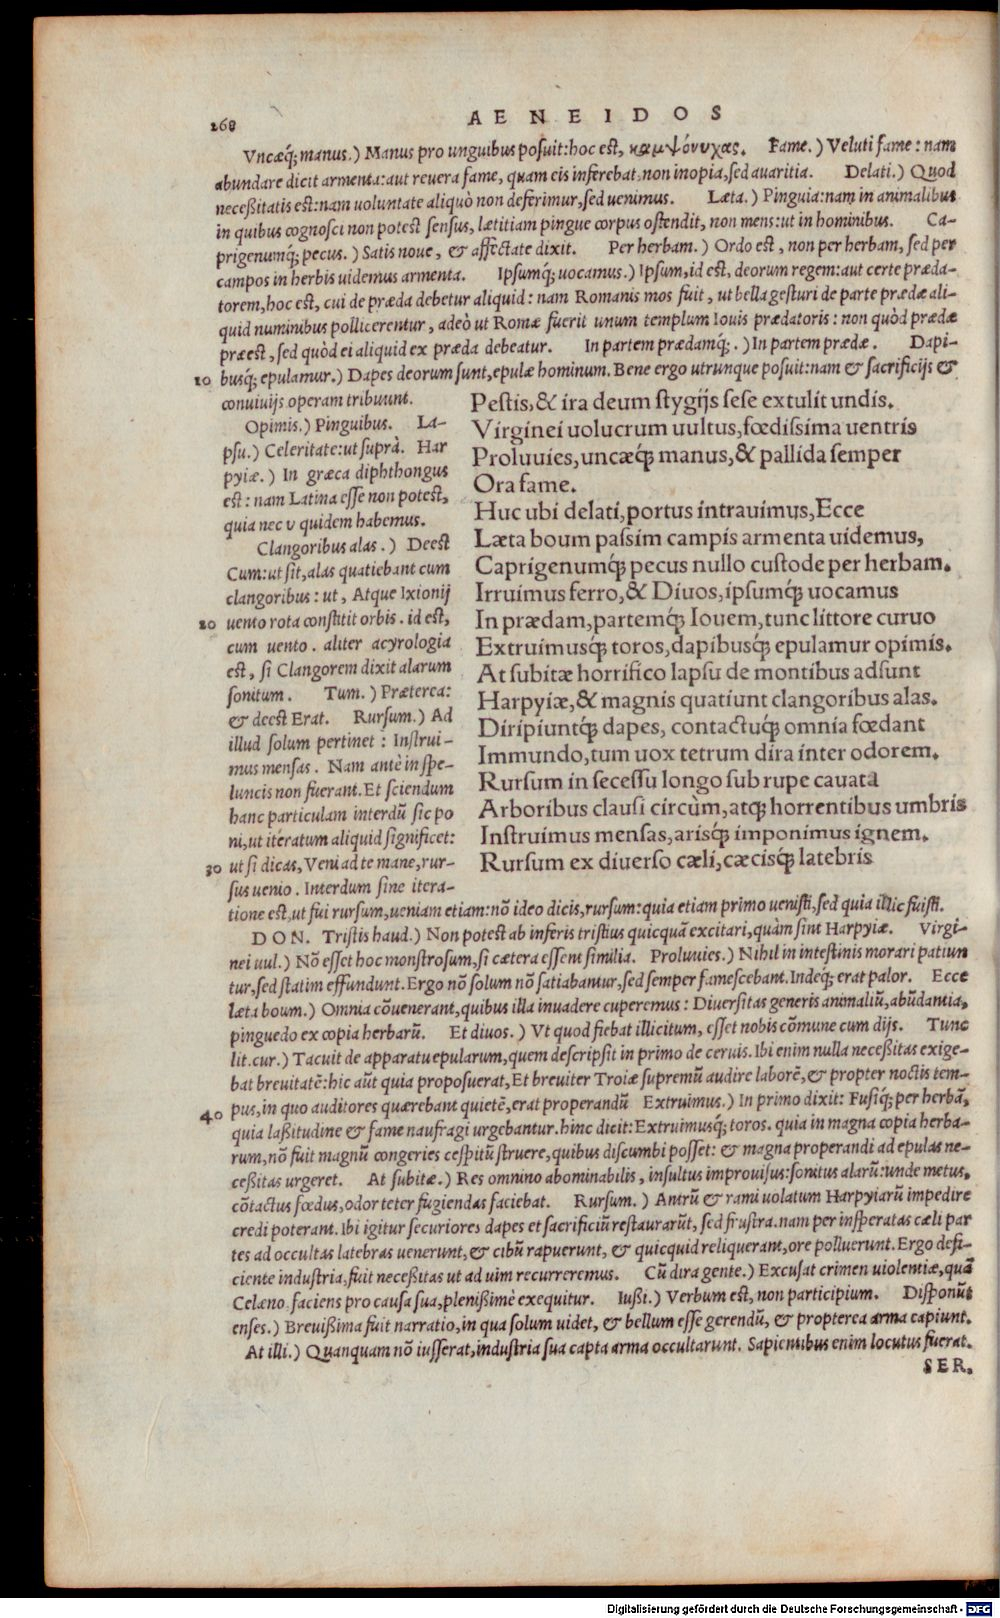 268
AENEIDOS
Vncæq́; manus.) Manus pro unguibus posuit: hoc est, καμψόνυχας. Fame.) Veluti fame: nam
abundare dicit armenta: aut reuera fame, quam eis inferebat, non inopia, sed auaritia. Delati.) Quod
neceßitatis est: nam uoluntate aliquò non deferimur, sed uenimus. Læta.) Pinguia: nam in animalibus
in quibus cognosci non potest sensus, lætitiam pingue corpus ostendit, non mens: ut in hominibus. Ca-
prigenumq́; pecus.) Satis noue, & affectate dixit. Per herbam.) Ordo est, non per herbam, sed per
campos in herbis uidemus armenta. Ipsumq́; uocamus.) Ipsum, id est, deorum regem: aut certe præda-
torem, hoc est, cui de præda debetur aliquid: nam Romanis mos fuit, ut bella gesturi de parte prædæ ali-
quid numinibus pollicerentur, adeò ut Romæ fuerit unum templum Iouis prædatoris: non quòd prædæ
præest, sed quòd ei aliquid ex præda debeatur. In partem prædamq́;.) In partem prædæ. Dapi-
10 busq́; epulamur.) Dapes deorum sunt, epulæ hominum. Bene ergo utrunque posuit: nam & sacrificijs &
conuiuijs operam tribuunt.
Opimis.) Pinguibus. La-
psu.) Celeritate: ut suprà. Har
pyiæ.) In græca diphthongus
est: nam Latina esse non potest,
quia nec υ quidem habemus.
Clangoribus alas.) Deest
Cum: ut sit, alas quatiebant cum
clangoribus: ut, Atque Ixionij
20 uento rota constitit orbis. id est,
cum uento. aliter acyrologia
est, si Clangorem dixit alarum
sonitum. Tum.) Præterea:
& deest Erat. Rursum.) Ad
illud solum pertinet: Instrui-
mus mensas. Nam antè in spe-
luncis non fuerant. Et sciendum
hanc particulam interdũ sic po
ni, ut iteratum aliquid significet:
30 ut si dicas, Veni ad te mane, rur-
sus uenio. Interdum sine itera-
Pestis, & ira deum stygijs sese extulit undis.
Virginei uolucrum uultus, fœdissima uentris
Proluuies, uncæq́; manus, & pallida semper
Ora fame.
Huc ubi delati, portus intrauimus, Ecce
Læta boum passim campis armenta uidemus,
Caprigenumq́; pecus nullo custode per herbam.
Irruimus ferro, & Diuos, ipsumq́; uocamus
In prædam, partemq́; Iouem, tunc littore curuo
Extruimusq́; toros, dapibusq́; epulamur opimis.
At subitæ horrifico lapsu de montibus adsunt
Harpyiæ, & magnis quatiunt clangoribus alas.
Diripiuntq́; dapes, contactuq́; omnia fœdant
Immundo, tum uox tetrum dira inter odorem.
Rursum in secessu longo sub rupe cauata
Arboribus clausi circùm, atq; horrentibus umbris
Instruimus mensas, arisq́; imponimus ignem.
Rursum ex diuerso cæli, cæcisq́; latebris
tione est, ut fui rursum, ueniam etiam: nõ ideo dicis, rursum: quia etiam primo uenisti, sed quia illic fuisti.
DON. Tristis haud.) Non potest ab inferis tristius quicquã excitari, quàm sint Harpyiæ. Virgi-
nei uul.) Nõ esset hoc monstrosum, si cætera essent similia. Proluuies.) Nihil in intestinis morari patiun
tur, sed statim effundunt. Ergo nõ solum nõ satiabantur, sed semper famescebant. Indeq́; erat palor. Ecce
læta boum.) Omnia cõuenerant, quibus illa inuadere cuperemus: Diuersitas generis animaliũ, abũdantia,
pinguedo ex copia herbarũ. Et diuos.) Vt quod fiebat illicitum, esset nobis cõmune cum dijs. Tunc
lit. cur.) Tacuit de apparatu epularum, quem descripsit in primo de ceruis. Ibi enim nulla neceßitas exige-
bat breuitatẽ: hic aũt quia proposuerat, Et breuiter Troiæ supremũ audire laborẽ, & propter noctis tem-
40 pus, in quo auditores quærebant quietẽ, erat properandũ Extruimus.) In primo dixit: Fusiq́; per herbã,
quia laßitudine & fame naufragi urgebantur. hinc dicit: Extruimusq́; toros. quia in magna copia herba-
rum, nõ fuit magnũ congeries cespitũ struere, quibus discumbi posset: & magna properandi ad epulas ne-
ceßitas urgeret. At subitæ.) Res omnino abominabilis, insultus improuisus: sonitus alarũ: unde metus,
cõtactus fœdus, odor teter fugiendas faciebat. Rursum.) Antrũ & rami uolatum Harpyiarũ impedire
credi poterant. Ibi igitur securiores dapes et sacrificiũ restaurarũt, sed frustra. nam per insperatas cæli par
tes ad occultas latebras uenerunt, & cibũ rapuerunt, & quicquid reliquerant, ore polluerunt. Ergo defi-
ciente industria, fuit neceßitas ut ad uim recurreremus. Cũ dira gente.) Excusat crimen uiolentiæ, quã
Celæno faciens pro causa sua, plenißimè exequitur. Iußi.) Verbum est, non participium. Disponũt
enses.) Breuißima fuit narratio, in qua solum uidet, & bellum esse gerendũ, & propterea arma capiunt.
At illi.) Quanquam nõ iusserat, industria sua capta arma occultarunt. Sapientibus enim locutus fuerat.
SER.
Digitalisierung gefördert durch die Deutsche Forschungsgemeinschaft - DFG